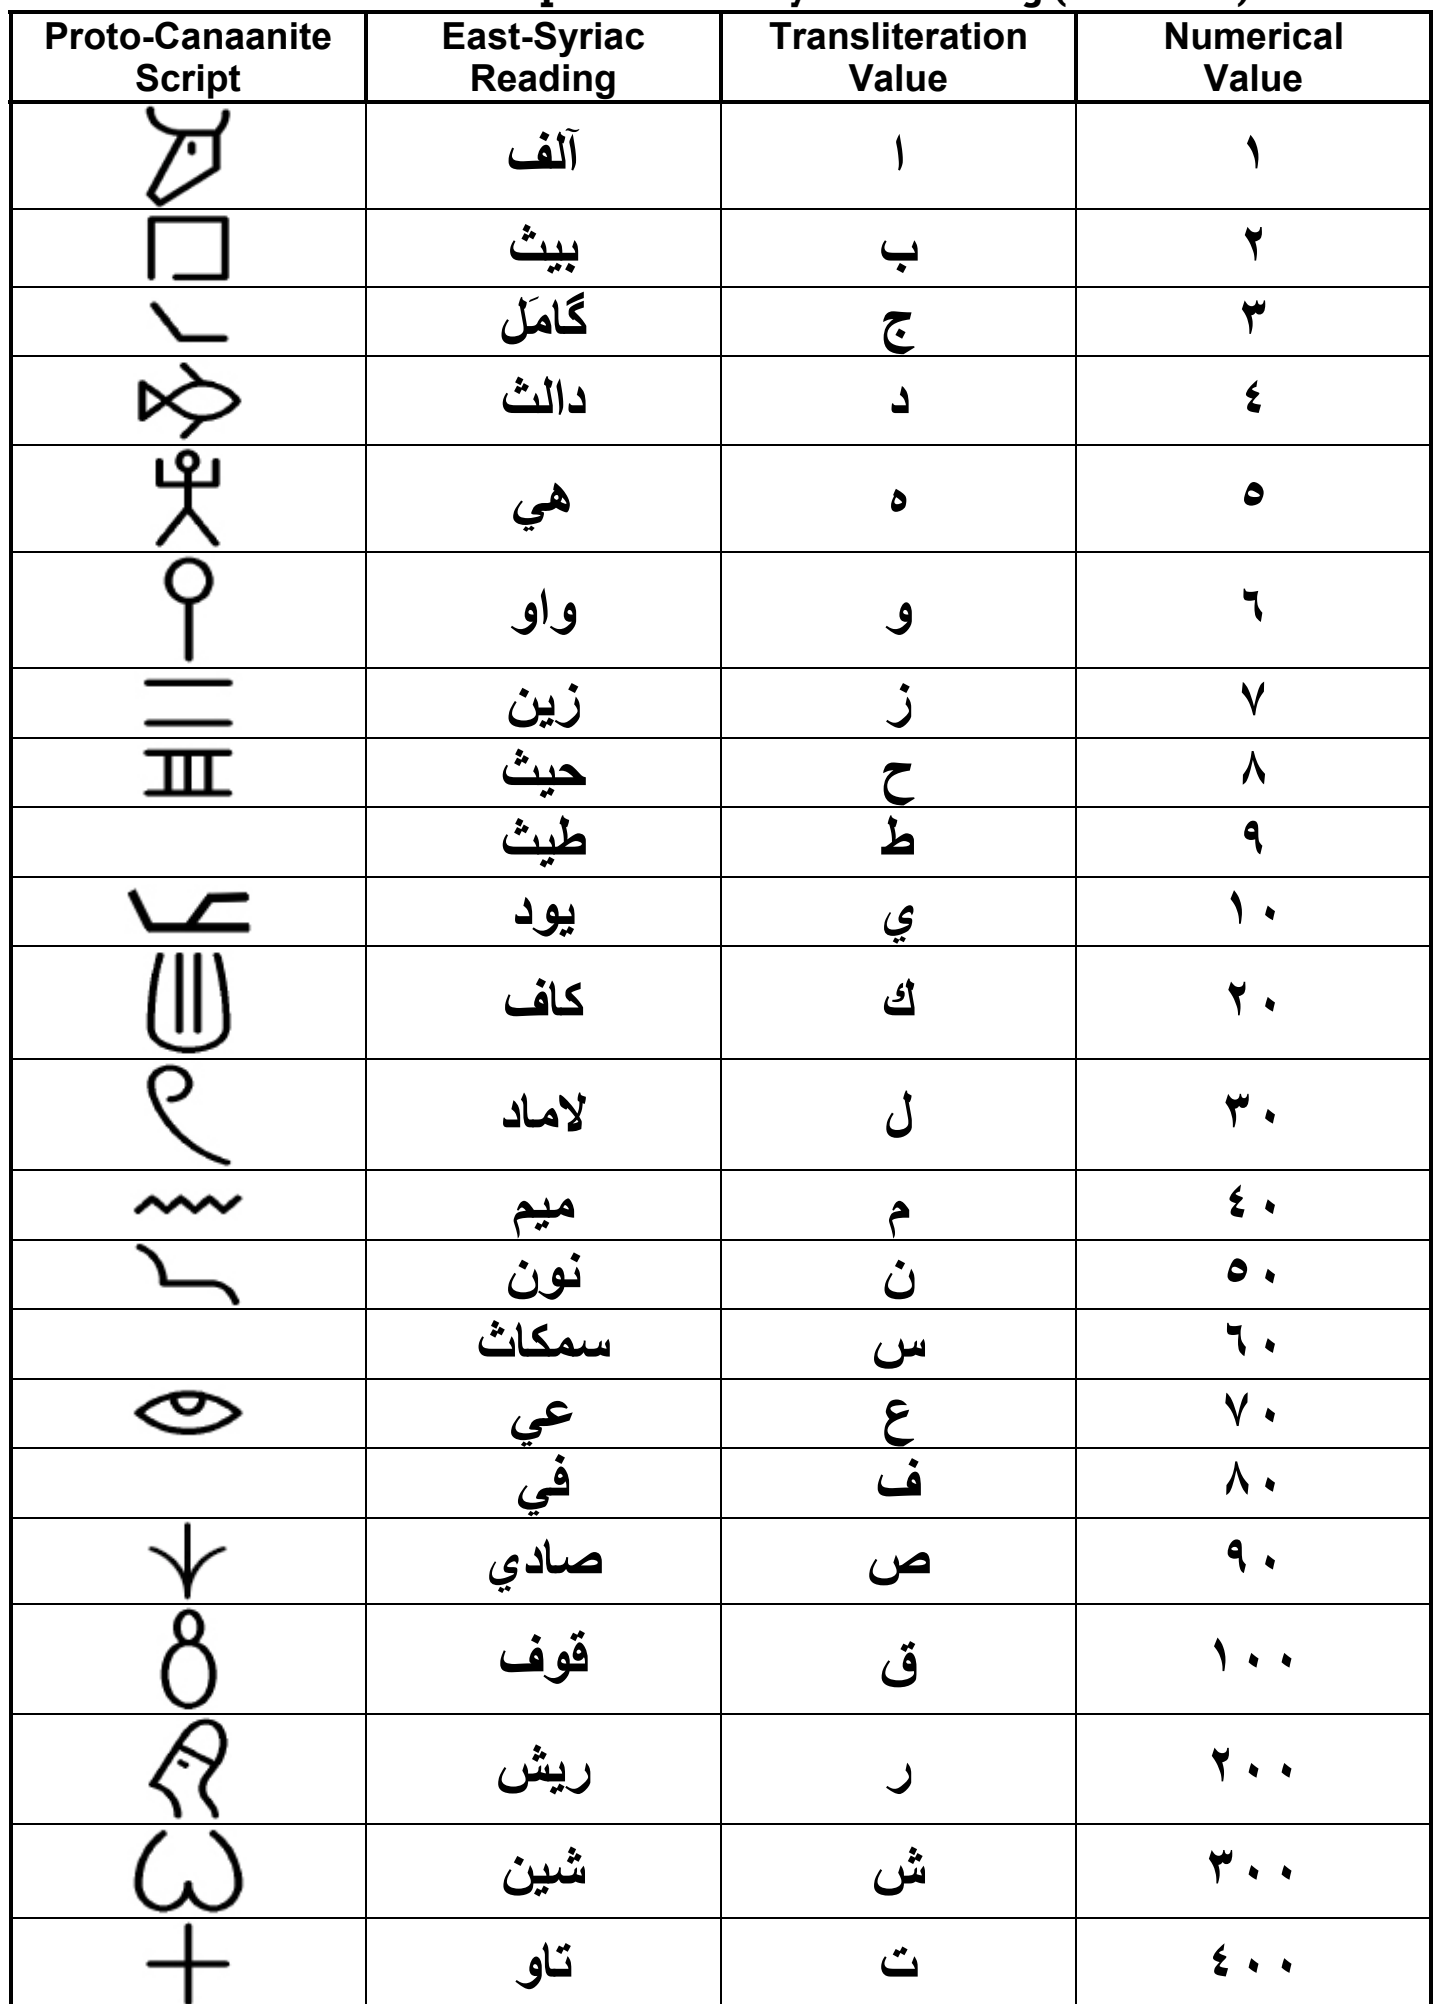 Proto-Canaanite Script East-Syriac Reading Transliteration Value Numerical Value
آلف ا ١
بيث ب ٢
گامَل ج ٣
دالث د ٤
هي ه ٥
واو و ٦
زين ز ٧
حيث ح ٨
طيث ط ٩
يود ي ١٠
كاف ك ٢٠
لاماد ل ٣٠
ميم م ٤٠
نون ن ٥٠
سمكاث س ٦٠
عي ع ٧٠
في ف ٨٠
صادي ص ٩٠
قوف ق ١٠٠
ريش ر ٢٠٠
شين ش ٣٠٠
تاو ت ٤٠٠